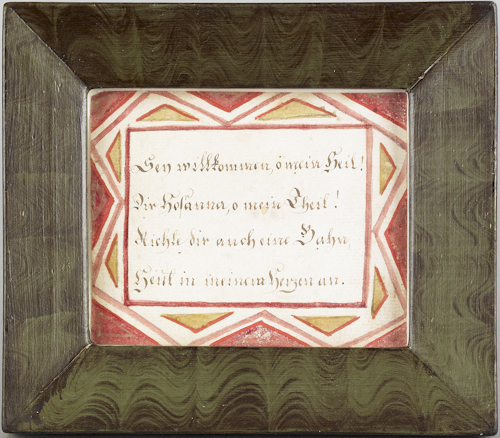 Sey willkommen, o mein Heil!
Dir Hosanna, o mein Theil!
Richte dir auch eine Bahn,
Heut in meinem Herzen an.